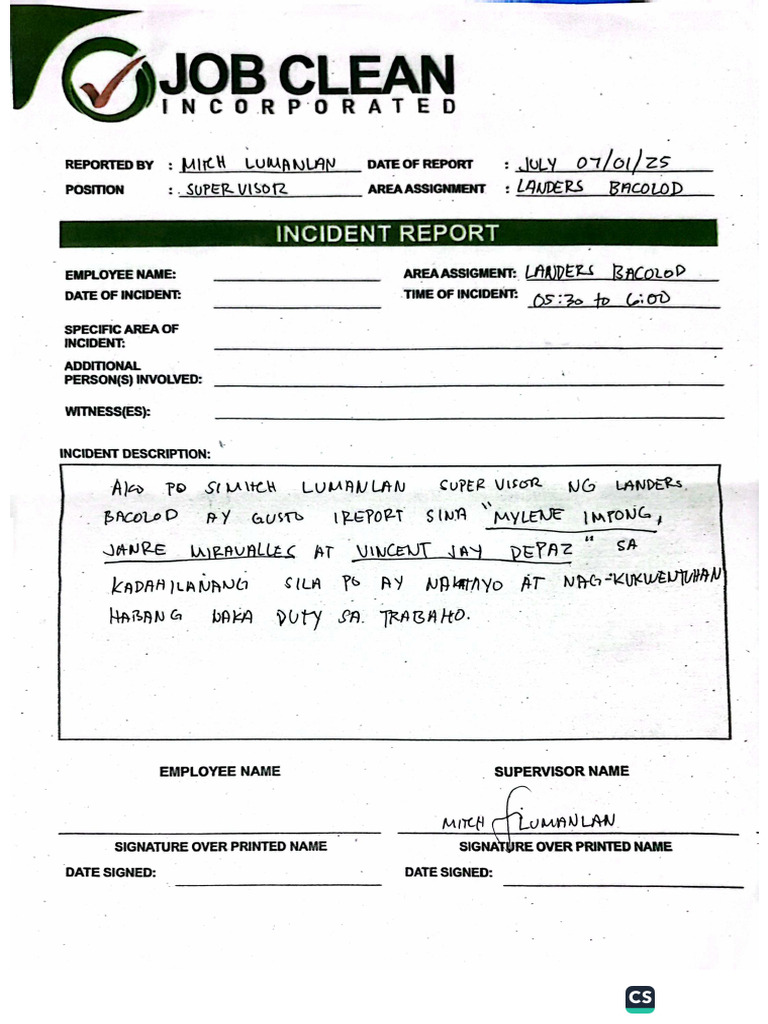 JOB CLEAN
INCORPORATED
REPORTED BY : MITCH LUMANLAN DATE OF REPORT : JULY 07/01/25
POSITION : SUPERVISOR AREA ASSIGNMENT : LANDERS BACOLOD
INCIDENT REPORT
EMPLOYEE NAME: AREA ASSIGMENT: LANDERS BACOLOD
DATE OF INCIDENT: TIME OF INCIDENT: 05:30 to 6:00
SPECIFIC AREA OF
INCIDENT:
ADDITIONAL
PERSON(S) INVOLVED:
WITNESS(ES):
INCIDENT DESCRIPTION:
AKO PO SI MITCH LUMANLAN SUPERVISOR NG LANDERS.
BACOLOD AY GUSTO IREPORT SINA "MYLENE IMPONG,
JANRE MIRAVALLES AT VINCENT JAY DEPAZ" SA
KADAHILANANG SILA PO AY NAKATAYO AT NAG-KUKWENTUHAN
HABANG NAKA DUTY SA. TRABAHO.
EMPLOYEE NAME SUPERVISOR NAME
MITCH LUMANLAN
SIGNATURE OVER PRINTED NAME SIGNATURE OVER PRINTED NAME
DATE SIGNED: DATE SIGNED:
CS